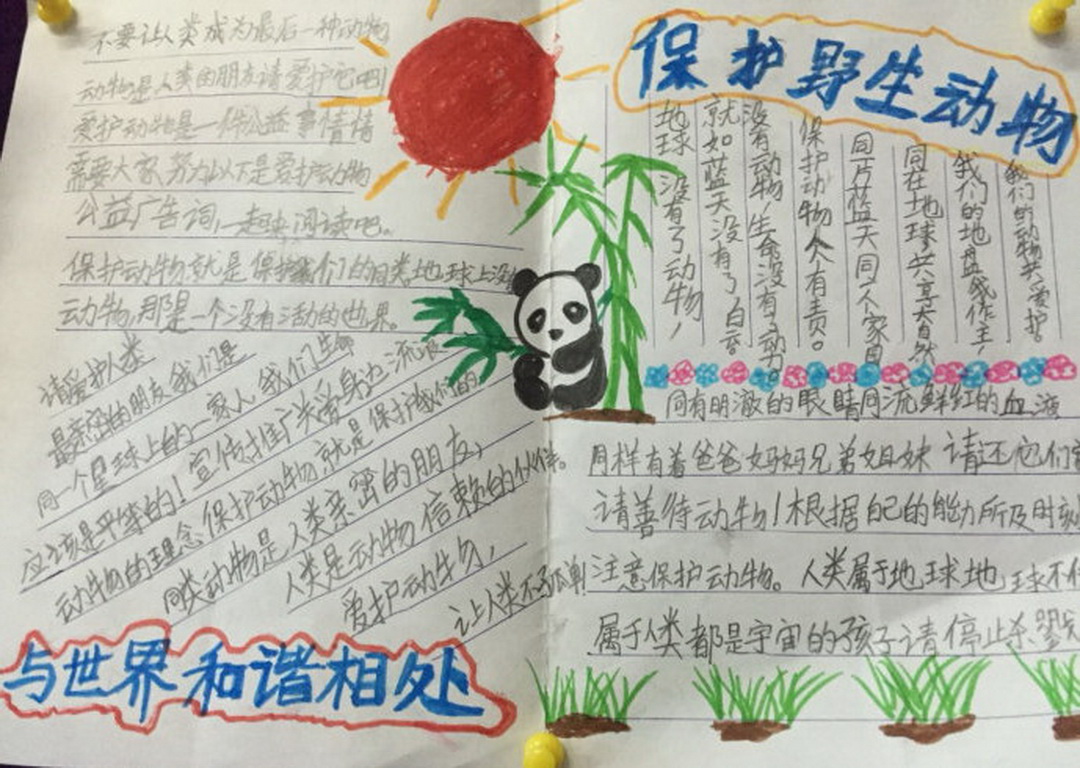 不要让人类成为最后一种动物
动物是人类的朋友请爱护它吧!
爱护动物是一件公益事情情
需要大家努力以下是爱护动物
公益广告词,一起来阅读吧。
保护动物就是保护我们的同类地球上没
动物,那是一个没有活动的世界。
请爱护人类
最亲密的朋友我们是
同一个星球上的一家人我们生命
应该是平等的!宣传推广关爱身边流浪
动物的理念保护动物就是保护我们的
同类动物是人类亲密的朋友,
人类是动物信赖的伙伴。
爱护动物,
让人类不孤单!
与世界和谐相处
保护野生动物
我们的动物共爱护。
我们的地盘我作主
同在地球共享大自然
同一片蓝天同一个家园
保护动物人人有责。
没有动物,生命没有动力。
就如蓝天没有了白云。
地球没有了动物,
同有明澈的眼睛同流鲜红的血液
同样有着爸爸妈妈兄弟姐妹 请还它们
请善待动物!根据自己的能力所及时刻
注意保护动物。人类属于地球地球不
属于人类都是宇宙的孩子请停止杀